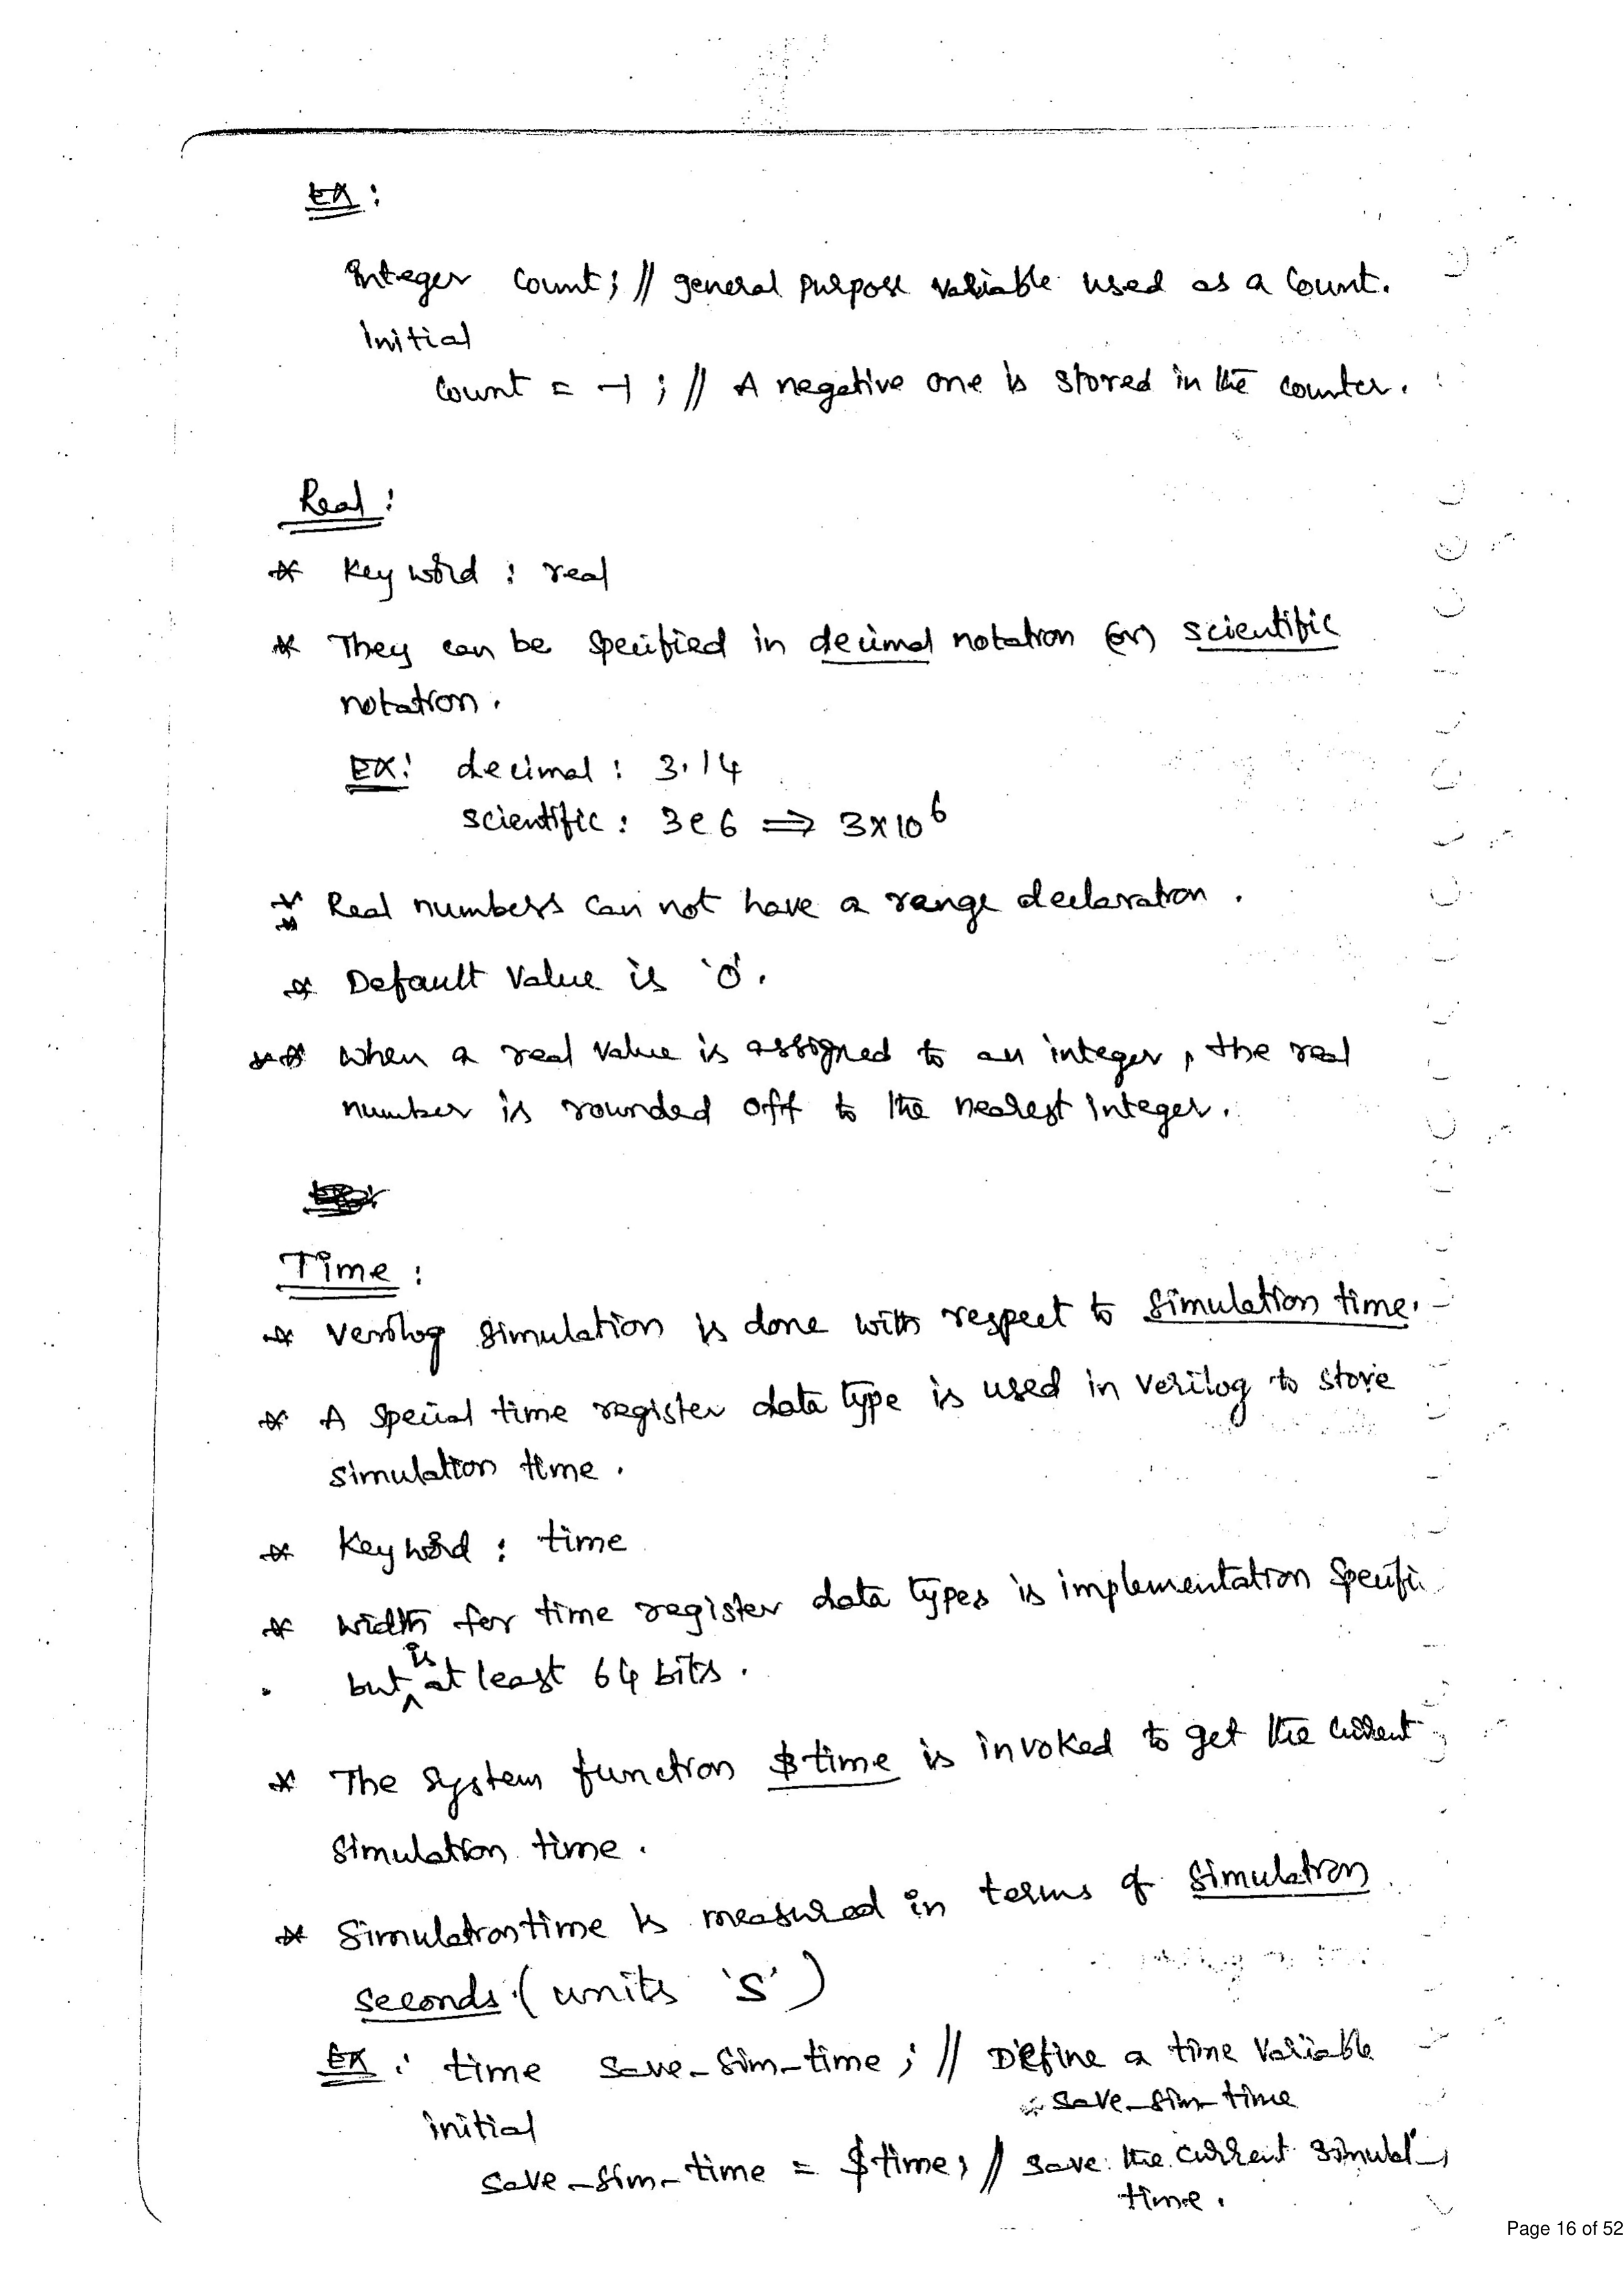 EX :
Integer Count ; // general purpose variable used as a Count.
Initial
Count = -1 ; // A negative one is stored in the counter.
Real :
* Keyword : real
* They can be specified in decimal notation (or) scientific
notation.
EX: decimal : 3.14
scientific : 3e6 ⇒ 3x10^6
* Real numbers can not have a range declaration.
* Default value is '0'.
** when a real value is assigned to an integer, the real
number is rounded off to the nearest integer.
Time :
* Verilog simulation is done with respect to simulation time.
* A special time register data type is used in verilog to store
simulation time.
* Keyword : time
* Width for time register data types is implementation specifi
but is at least 64 bits.
* The system function $time is invoked to get the current
simulation time.
* Simulation time is measured in terms of simulation
seconds. (units 's')
EX : time save_sim_time ; // Define a time variable
save_sim_time
initial
save_sim_time = $time; // save the current simul
time.
Page 16 of 52